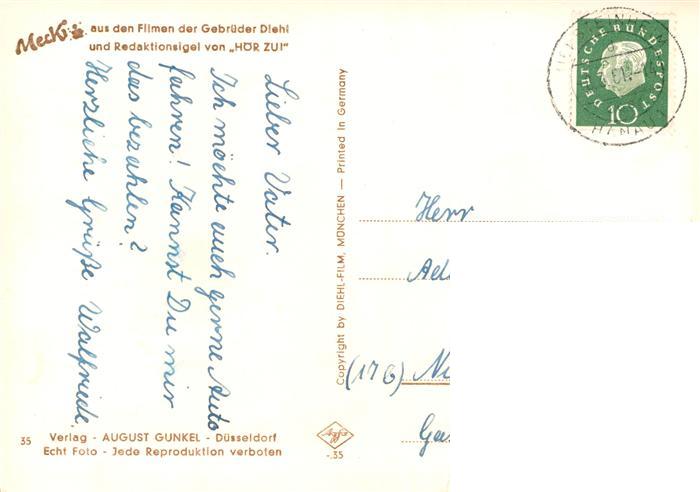 Mecki aus den Filmen der Gebrüder Diehl
und Redaktionsigel von „HÖR ZU!"
Lieber Vater.
Ich möchte auch gerne Auto
fahren! Kannst Du mir
das bezahlen?
Herzliche Grüße Walfriede.
35 Verlag - AUGUST GUNKEL - Düsseldorf
Echt Foto - Jede Reproduktion verboten
Copyright by DIEHL-FILM, MÜNCHEN — Printed in Germany
Agfa
-.35
DEUTSCHE BUNDESPOST
10
HANAU
Herr
(176)